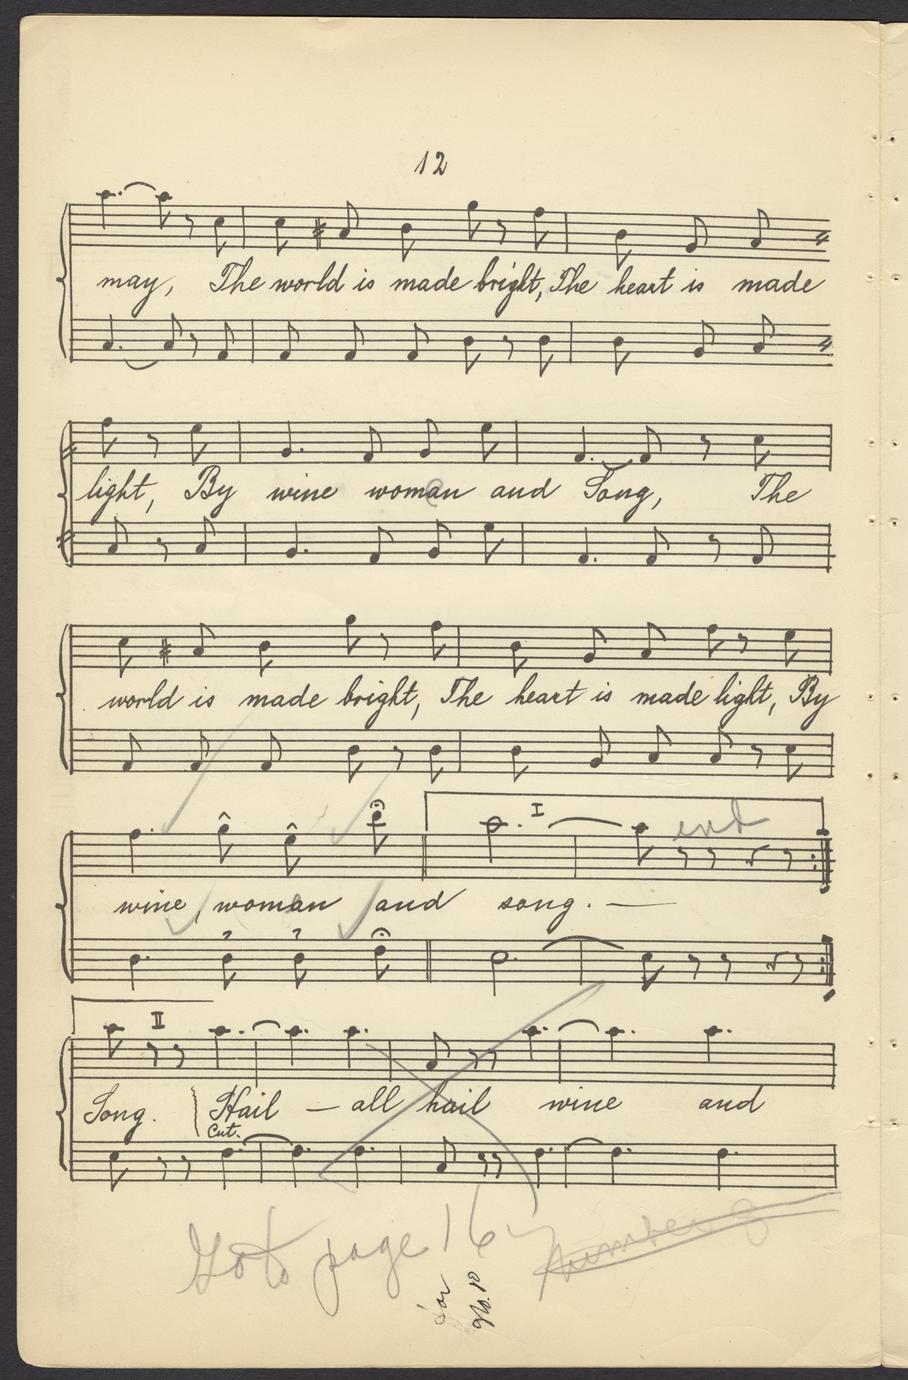 12
may, The world is made bright, The heart is made
light, By wine woman and Song, The
world is made bright, The heart is made light, By
I
end
wine, woman and song. —
II
Song. Hail — all hail wine and
Cut.
Go to page 16
Number 8
for
No. 10